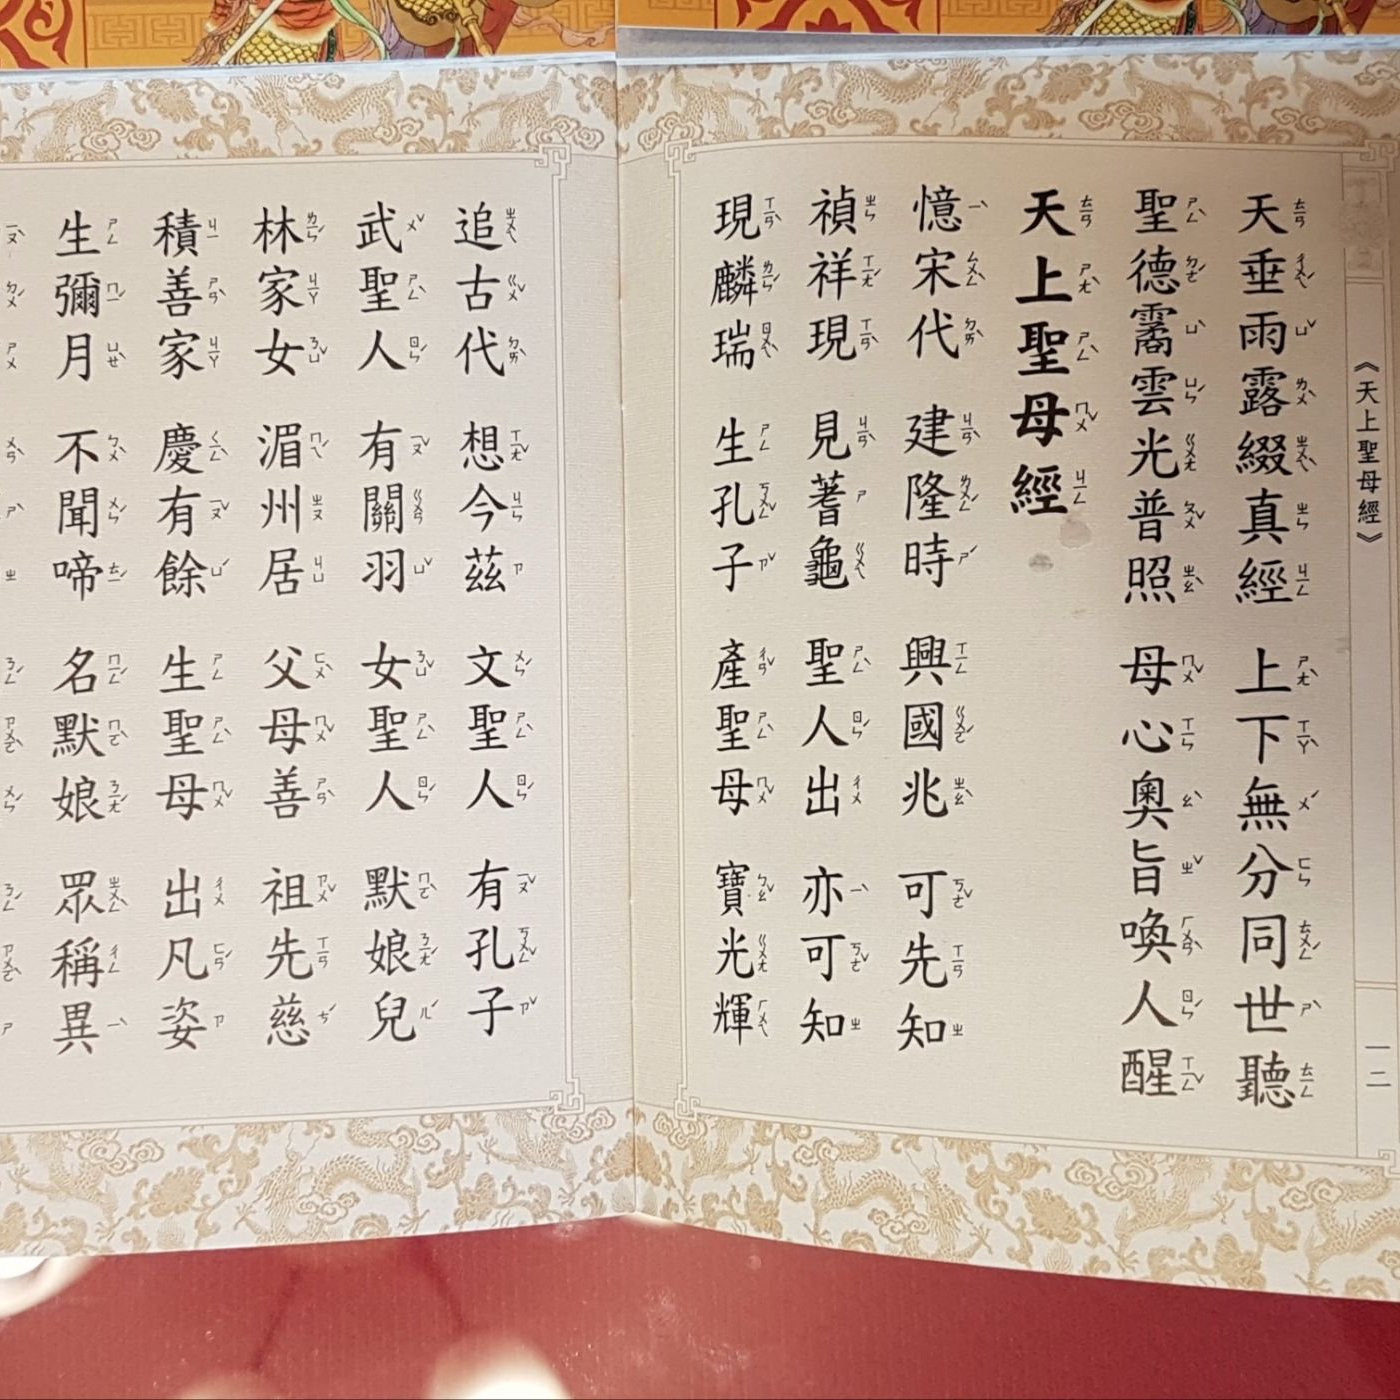 《天上聖母經》
一二
天垂雨露綴真經 上下無分同世聽
聖德霱雲光普照 母心奧旨喚人醒
天上聖母經
憶宋代 建隆時 興國兆 可先知
禎祥現 見蓍龜 聖人出 亦可知
現麟瑞 生孔子 產聖母 寶光輝
追古代 想今茲 文聖人 有孔子
武聖人 有關羽 女聖人 默娘兒
林家女 湄州居 父母善 祖先慈
積善家 慶有餘 生聖母 出凡姿
生彌月 不聞啼 名默娘 眾稱異